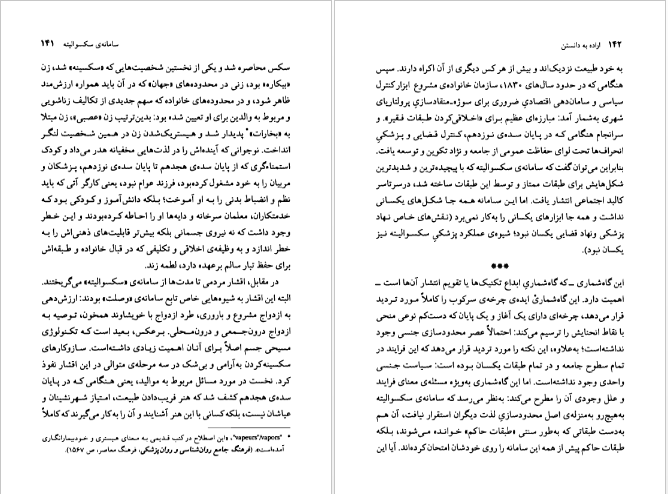 سامانه‌ی سکسوالیته ۱۴۱
سکس محاصره شد و یکی از نخستین شخصیت‌هایی که «سکسینه» شد، زن
«بیکاره» بود، زنی در محدوده‌های «جهان» که در آن باید همواره ارزش‌مند
ظاهر شود، و در محدوده‌های خانواده که سهم جدیدی از تکالیف زناشویی
و مربوط به والدین برای او تعیین شده بود: بدین‌ترتیب زن «عصبی»، زن مبتلا
به «بخارات»* پدیدار شد و هیستریک‌شدن زن در همین شخصیت لنگر
انداخت. نوجوانی که آینده‌اش را در لذت‌هایی مخفیانه هدر می‌داد و کودک
استمناءگری که از پایان سده‌ی هجدهم تا پایان سده‌ی نوزدهم، پزشکان و
مربیان را به خود مشغول کرده‌بود، فرزند عوام نبود، یعنی کارگر آتی که باید
نظم و انضباط بدنی را به او آموخت؛ بلکه دانش‌آموز و کودکی بود که
خدمتکاران، معلمان سرخانه و دایه‌ها او را احاطه کرده‌بودند و این خطر
وجود داشت که نه نیروی جسمانی بلکه بیش‌تر قابلیت‌های ذهنی‌اش را به
خطر اندازد و به وظیفه‌ی اخلاقی و تکلیفی که در قبال خانواده و طبقه‌اش
برای حفظ تبار سالم برعهده دارد، لطمه زند.
در مقابل، اقشار مردمی تا مدت‌ها از سامانه‌ی «سکسوالیته» می‌گریختند.
البته این اقشار به شیوه‌هایی خاص تابع سامانه‌ی «وصلت» بودند: ارزش‌دهی
به ازدواج مشروع و باروری، طرد ازدواج با خویشاوند همخون، توصیه به
ازدواج درون‌جمعی و درون‌محلی. برعکس، بعید است که تکنولوژی
مسیحی جسم اصلاً برای آنان اهمیت زیادی داشته‌است. سازوکارهای
سکسینه‌کردن به‌آرامی و بی‌شک در سه مرحله‌ی متوالی در این اقشار نفوذ
کرد. نخست در مورد مسائل مربوط به موالید، یعنی هنگامی که در پایان
سده‌ی هجدهم کشف شد که هنر فریب‌دادن طبیعت، امتیاز شهرنشینان و
عیاشان نیست، بلکه کسانی با این هنر آشنایند و آن را به‌کار می‌گیرند که کاملاً
* "vapeurs"/vapors، «این اصطلاح در کتب قدیمی به معنای هیستری و خودبیمارانگاری
آمده‌است». (فرهنگ جامع روان‌شناسی و روان‌پزشکی، فرهنگ معاصر، ص ۱۵۶۷).
۱۴۲ اراده به دانستن
به خود طبیعت نزدیک‌اند و بیش از هر کس دیگری از آن اکراه دارند. سپس
هنگامی که در حدود سال‌های ۱۸۳۰، سازمان خانواده‌ی مشروع ابزار کنترل
سیاسی و سامان‌دهی اقتصادیِ ضروری برای سوژه‌منقادسازیِ پرولتاریای
شهری به‌شمار آمد: مبارزه‌ای عظیم برای «اخلاقی‌کردن طبقات فقیر». و
سرانجام هنگامی که در پایان سده‌ی نوزدهم، کنترل قضایی و پزشکیِ
انحراف‌ها تحت لوای حفاظت عمومی از جامعه و نژاد تکوین و توسعه یافت.
بنابراین می‌توان گفت که سامانه‌ی سکسوالیته که با پیچیده‌ترین و شدیدترین
شکل‌هایش برای طبقات ممتاز و توسط این طبقات ساخته شد، درسرتاسر
کالبد اجتماعی انتشار یافت. اما این سامانه همه جا شکل‌های یکسانی
نداشت و همه جا ابزارهای یکسانی را به‌کار نمی‌برد (نقش‌های خاص نهاد
پزشکی ونهاد قضایی یکسان نبود؛ شیوه‌ی عملکرد پزشکیِ سکسوالیته نیز
یکسان نبود).
***
این گاه‌شماری ــ که گاه‌شماری ابداع تکنیک‌ها یا تقویم انتشار آن‌ها است ــ
اهمیت دارد. این گاه‌شماری ایده‌ی چرخه‌ی سرکوب را کاملاً مورد تردید
قرار می‌دهد، چرخه‌ای دارای یک آغاز و یک پایان که دست‌کم نوعی منحنی
با نقاط انحنایش را ترسیم می‌کند: احتمالاً عصر محدودسازی جنسی وجود
نداشته‌است؛ به‌علاوه، این نکته را مورد تردید قرار می‌دهد که این فرایند در
تمام سطوح جامعه و در تمام طبقات یکسان بوده است: سیاست جنسی
واحدی وجود نداشته‌است. اما این گاه‌شماری به‌ویژه مسئله‌ی معنای فرایند
و علل وجودی آن را مطرح می‌کند: به‌نظر می‌رسد که سامانه‌ی سکسوالیته
به‌هیچ‌رو به‌منزله‌ی اصل محدودسازی لذت دیگران استقرار نیافت، آن هم
به‌دست طبقاتی که به‌طور سنتی «طبقات حاکم» خوانده می‌شوند، بلکه
طبقات حاکم پیش از همه این سامانه را روی خودشان امتحان کرده‌اند. آیا این